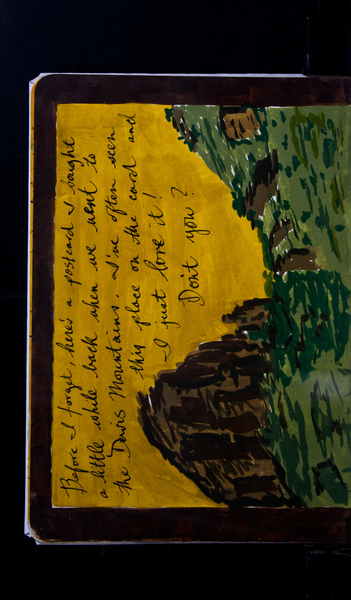 Before I forget, here's a postcard I bought
a little while back when we went to
the Davis Mountains. I've often seen
this place on the card and
I just love it!
Don't you?